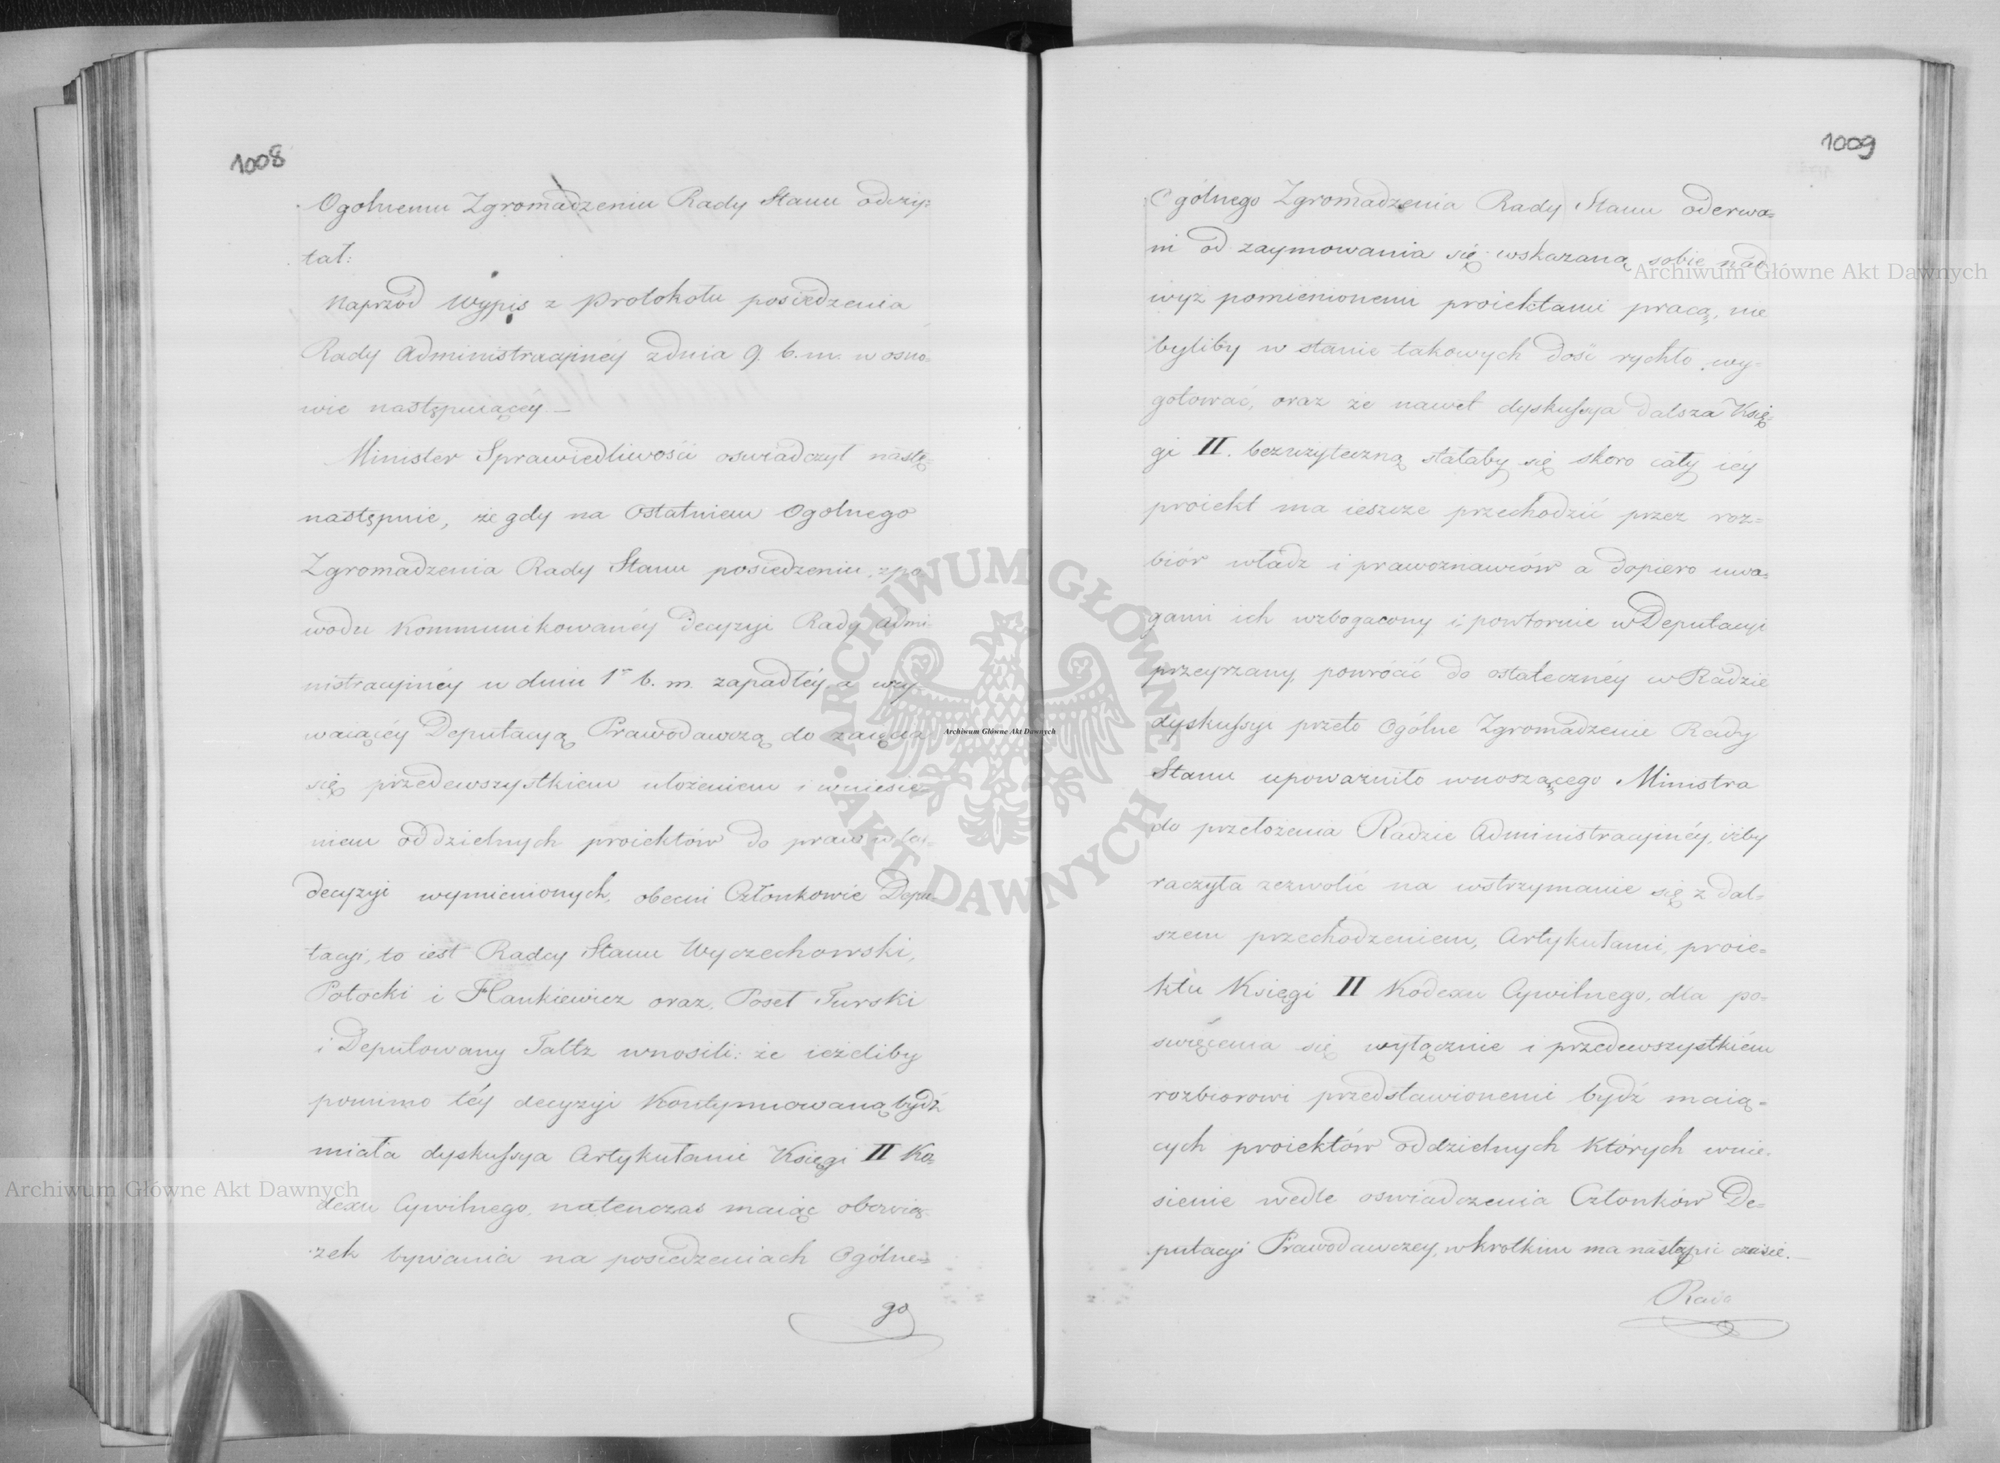 1008
Ogolnemu Zgromadzeniu Rady Stanu odczy=
tał:
Naprzód Wypis z Protokołu posiedzenia
Rady Administracyinéy z dnia 9. b. m. w osno=
wie następuiącey —
Minister Sprawiedliwości oswiadczył nastę=
następnie, że gdy na Ostatniem Ogolnego
Zgromadzenia Rady Stanu posiedzeniu, z po
wodu Kommunikowanéy Decyzyi Rady Admi
nistracyinéy w dniu 1° b. m. zapadłéy, a wzy
waiącéy Deputacyą Prawodawczą do zaięcia
się przedewszystkiem ułożeniem i wniesie=
niem oddzielnych proiektów do praw w téi
decyzyi wymienionych, obecni Członkowie Depu=
tacyi, to iest Radcy Stanu Wyczechowski,
Potocki i Hankiewicz oraz, Poseł Turski
i Deputowany Faltz wnosili: że ieżeliby
pomimo téy decyzyi Kontynuowaną bydź
miała dyskussya Artykułami Księgi II Ko=
dexu Cywilnego, natenczas maiąc obowią=
zek bywania na posiedzeniach Ogólne=
go
1009
Ogólnego Zgromadzenia Rady Stanu oderwa=
ni od zaymowania się wskazaną sobie nad
wyż pomienionemi proiektami pracą, nie
byliby w stanie takowych dość rychło wy=
gotować, oraz że nawet dyskussya dalsza Księ=
gi II. bezużyteczną stałaby się skoro cały iéy
proiekt ma ieszcze przechodzić przez roz=
biór władz i prawoznawców a dopiero uwa=
gami ich wzbogacony i powtornie w Deputacyi
przeyrzany, powrócić do ostatecznéy w Radzie
dyskussyi przeto Ogólne Zgromadzenie Rady
Stanu upoważniło wnoszącego Ministra
do przełożenia Radzie Administracyinéy, iżby
raczyła zezwolić na wstrzymanie się z dal=
szem przechodzeniem, Artykułami, proie=
ktu Księgi II Kodexu Cywilnego, dla po=
święcenia się wyłącznie i przedewszystkiém
rozbiorowi przedstawionemi bydź maią=
cych proiektów oddzielnych których wnie=
sienie wedle oswiadczenia Członków De=
putacyi Prawodawczey, w krotkim ma nastąpić czasie. —
Rada
Archiwum Główne Akt Dawnych
Archiwum Główne Akt Dawnych
Archiwum Główne Akt Dawnych
ARCHIWUM GŁÓWNE AKT DAWNYCH